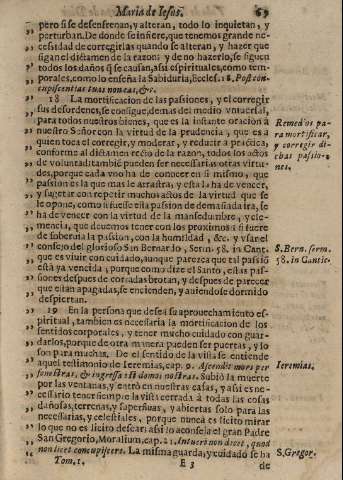 Maria de Iesus. 69
pero si se desenfrenan, y alteran, todo lo inquietan, y
perturban. De donde se infiere, que tenemos grande ne-
cessidad de corregirlas quando se alteran, y hazer que
sigan el dictamen de la razon; y de no hazerlo, se siguen
todos los daños q̃ se causan, assi espirituales, como tem-
porales, como lo enseña la Sabiduria, Eccles. 18. Post con-
cupiscentias tuas non eas, &c.
18 La mortificacion de las passiones, y el corregir
sus desordenes, se consigue, demas del medio vniuersal,
para todos nuestros bienes, que es la instante oracion à
nuestro Señor con la virtud de la prudencia, que es à
quien toca el corregir, y moderar, y reducir a practica,
conforme al dictamen recto de la razon, todos los actos
de voluntad: tambiẽ pueden ser necessarias otras virtu-
des, porque cada vno ha de conocer en si mismo, que
passion es la que mas le arrastra, y esta ha de vencer,
y sugetar con repetir muchos actos de la virtud que se
le opone, como si fuesse esta passion de demasiada ira, se
ha de vencer con la virtud de la mansedumbre, y cle-
mencia, que deuemos tener con los proximos: si fuere
de soberuia la passion, con la humildad, &c. y s a el
consejo del glorioso San Bernardo, Serm. 58. in Cant.
que es viuir con cuidado, aunque parezca que tal passiõ
està ya vencida, porque como dize el Santo, estas pas-
siones despues de cortadas brotan, y despues de parecer
que estàn apagadas, se encienden, y auiendose dormido
despiertan.
19 En la persona que desea su aprouechamiento es-
piritual, tambien es necessaria la mortificacion de los
sentidos corporales, y tener mucho cuidado con guar-
darlos, porque de otra manera pueden ser puertas, y lo
son para muchas. De el sentido de la vista se entiende
aquel testimonio de Ieremias, cap. 9. Ascendit mors per
fenestras, & ingressa est domos nostras. Subiò la muerte
por las ventanas, y entrò en nuestras casas, y assi es ne-
cessario tener siempre la vista cerrada à todas las cosas
dañosas, terrenas, y superfluas, y abiertas solo para las
necessarias, y celestiales, porque nunca es licito mirar
lo que no es licito desear: assi lo aconseja el gran Padre
San Gregorio, Moralium, cap. 21. Intueri non dicet, quod
non licet concupiscere. La misma guarda, y cuidado se ha
Tom. 1. E 3 de
Remedios pa-
ra mortificar,
y corregir di-
chas passio-
nes.
S. Bern. serm.
58. in Cantic.
Ieremias.
S. Gregor.